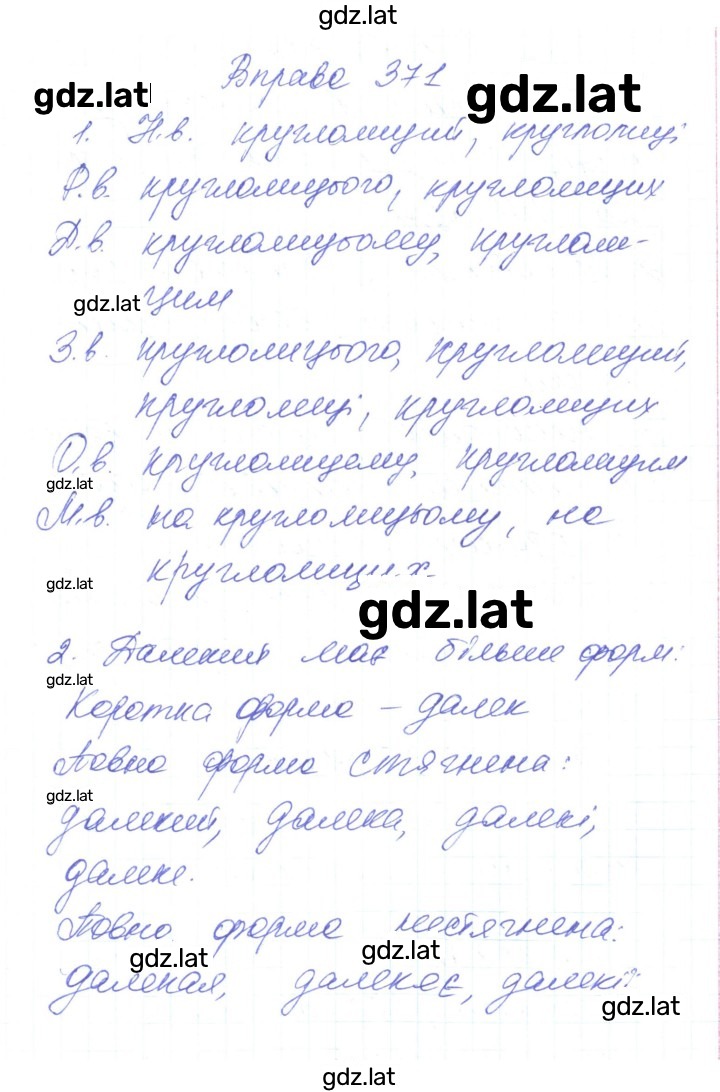 gdz.lat
Вправа 371
gdz.lat
gdz.lat
1. Н.в. кругломиций, кругломиці
Р.в. кругломицього, кругломицих
Д.в. кругломицьому, кругломи-
gdz.lat
цим
З.в. кругломицього, кругломиций,
кругломиці, кругломицих
О.в. кругломицему, кругломицим
gdz.lat
М.в. на кругломицьому, на
gdz.lat
кругломицих.
gdz.lat
2. Далекий має більше форм:
gdz.lat
Коротка форма – далек
Повна форма стягнена:
gdz.lat
далекий, далека, далекі,
далеке.
Повна форма нестягнена:
gdz.lat
gdz.lat
далекая, далекає, далекії
gdz.lat
gdz.lat